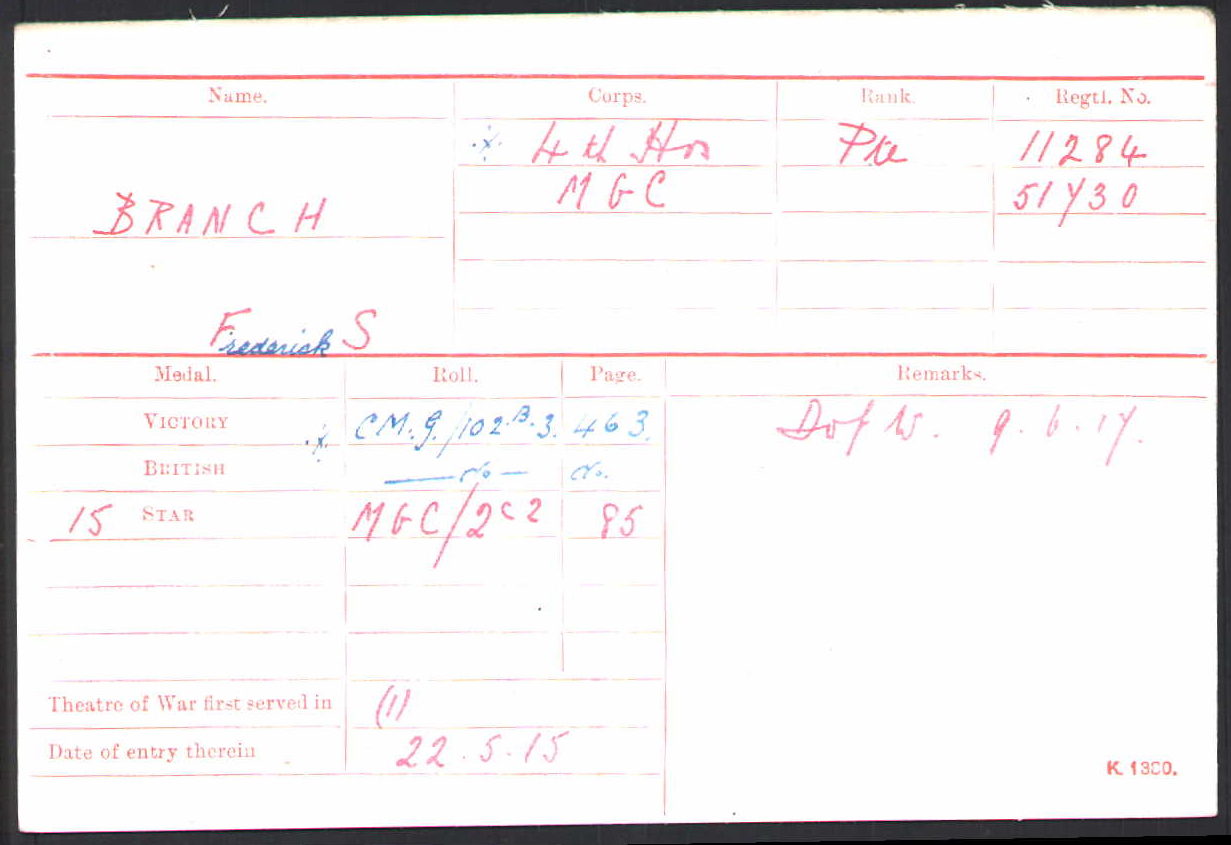 Name. Corps. Rank. Regtl. No.
·x· 4th Hrs Pte 11284
MGC 51730
BRANCH
Frederick S
Medal. Roll. Page. Remarks.
VICTORY ·x· CM.G./102.B.3. 463. D of W. 9.6.17.
BRITISH — do — do.
15 STAR MGC/2C2 85
Theatre of War first served in (1)
Date of entry therein 22.5.15
K. 1380.